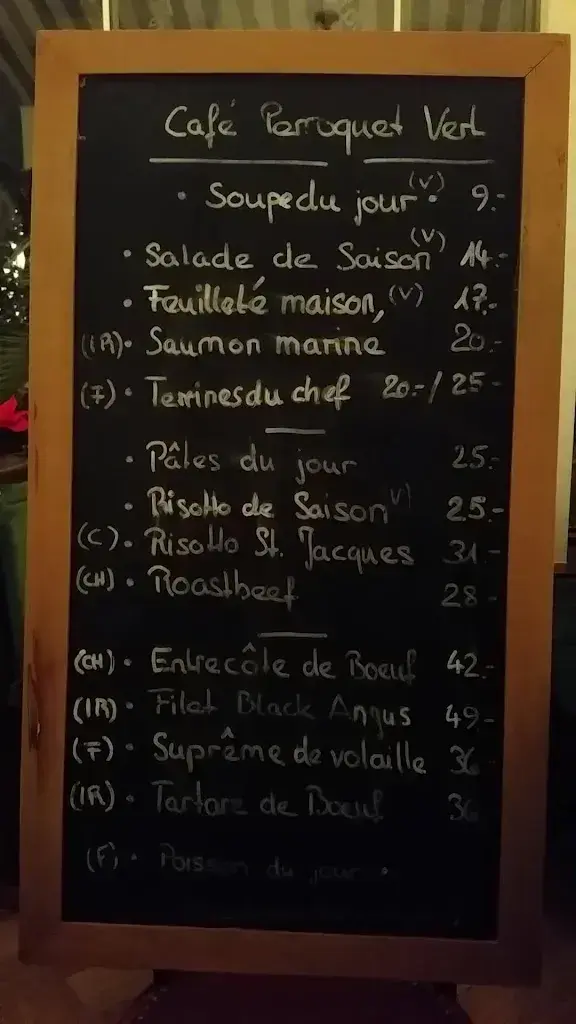 Café Perroquet Vert
• Soupe du jour (V) • 9.-
• Salade de Saison (V) 14.-
• Feuilleté maison, (V) 17.-
(IR) • Saumon marine 20.-
(F) • Terrines du chef 20.-/25-
• Pâtes du jour 25.-
• Risotto de Saison (V) 25.-
(C) • Risotto St. Jacques 31.-
(CH) • Roastbeef 28-
(CH) • Entrecôte de Boeuf 42.-
(IR) • Filet Black Angus 49-
(F) • Suprême de volaille 36
(IR) • Tartare de Boeuf 36
(F) • Poisson du jour •